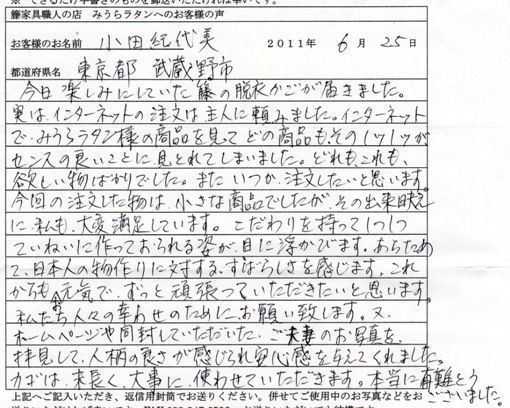 ※ できるだけ手書きのものを郵送いただければ幸いです。
籐家具職人の店 みうらラタンへのお客様の声
お客様のお名前 小田紀代美 2011年 6月 25日
都道府県名 東京都 武蔵野市
今日楽しみにしていた籐の脱衣かごが届きました。
実は、インターネットの注文は主人に頼みました。インターネット
で、みうらラタン様の商品を見てどの商品も、その1ツ1ツが
センスの良いことに見とれてしまいました。どれも、これも、
欲しい物ばかりでした。また いつか、注文したいと思います。
今回の注文した物は、小さな商品でしたが、その出来映え
に私も、大変満足しています。こだわりを持って1つ1つ
ていねいに作っておられる姿が、目に浮かびます。あらため
て、日本人の物作りに対する、すばらしさを感じます、これ
からもお元気で、ずっと頑張っていただきたいと思います。
私たち人々の幸わせのためにお願い致します。又、
ホームページや同封していただいた、ご夫妻のお写真を、
拝見して、人柄の良さが感じられ安心感を与えてくれました。
カゴは、末長く、大事に、使わせていただきます。本当に有難とう
ございました。
上記へご記入いただき、返信用封筒でお送りください。併せてご使用中のお写真などをお